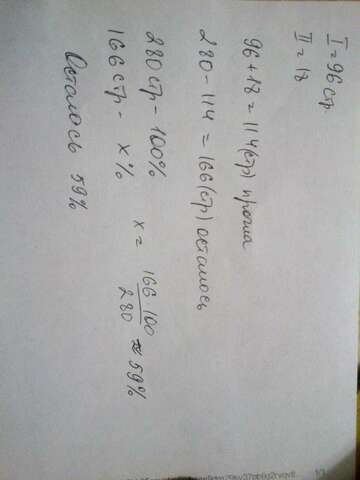 I = 96 стр
II = 18
96 + 18 = 114 (стр) прочла
280 - 114 = 166 (стр) осталось
280 стр - 100%
166 стр - x%
x = 166 · 100 / 280 ≈ 59%
Осталось 59%